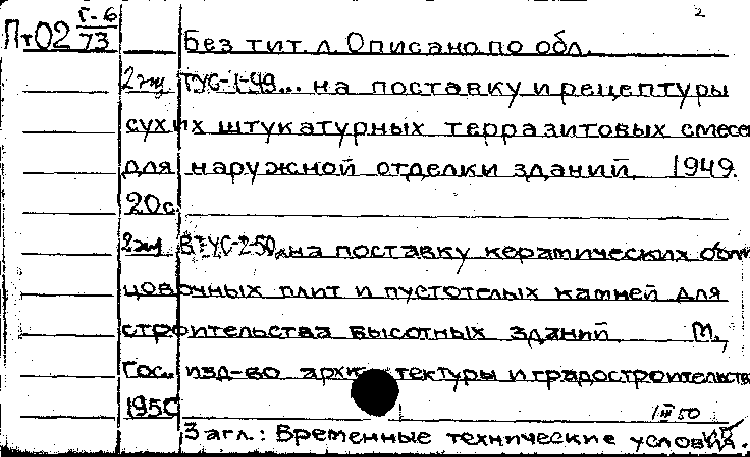 2
Пт02 Г-6/73
Без тит. л. Описано по обл.
2 экз ТУС-1-49... на поставку и рецептуры
сухих штукатурных терразитовых смесе
для наружной отделки зданий. 1949.
20с.
2 экз ВТУС-2-50... на поставку керамических обли
цовочных плит и пустотелых камней для
строительства высотных зданий. М.,
Гос. изд-во архитектуры и градостроительства
1950
1 III 50
Загл.: Временные технические условия.